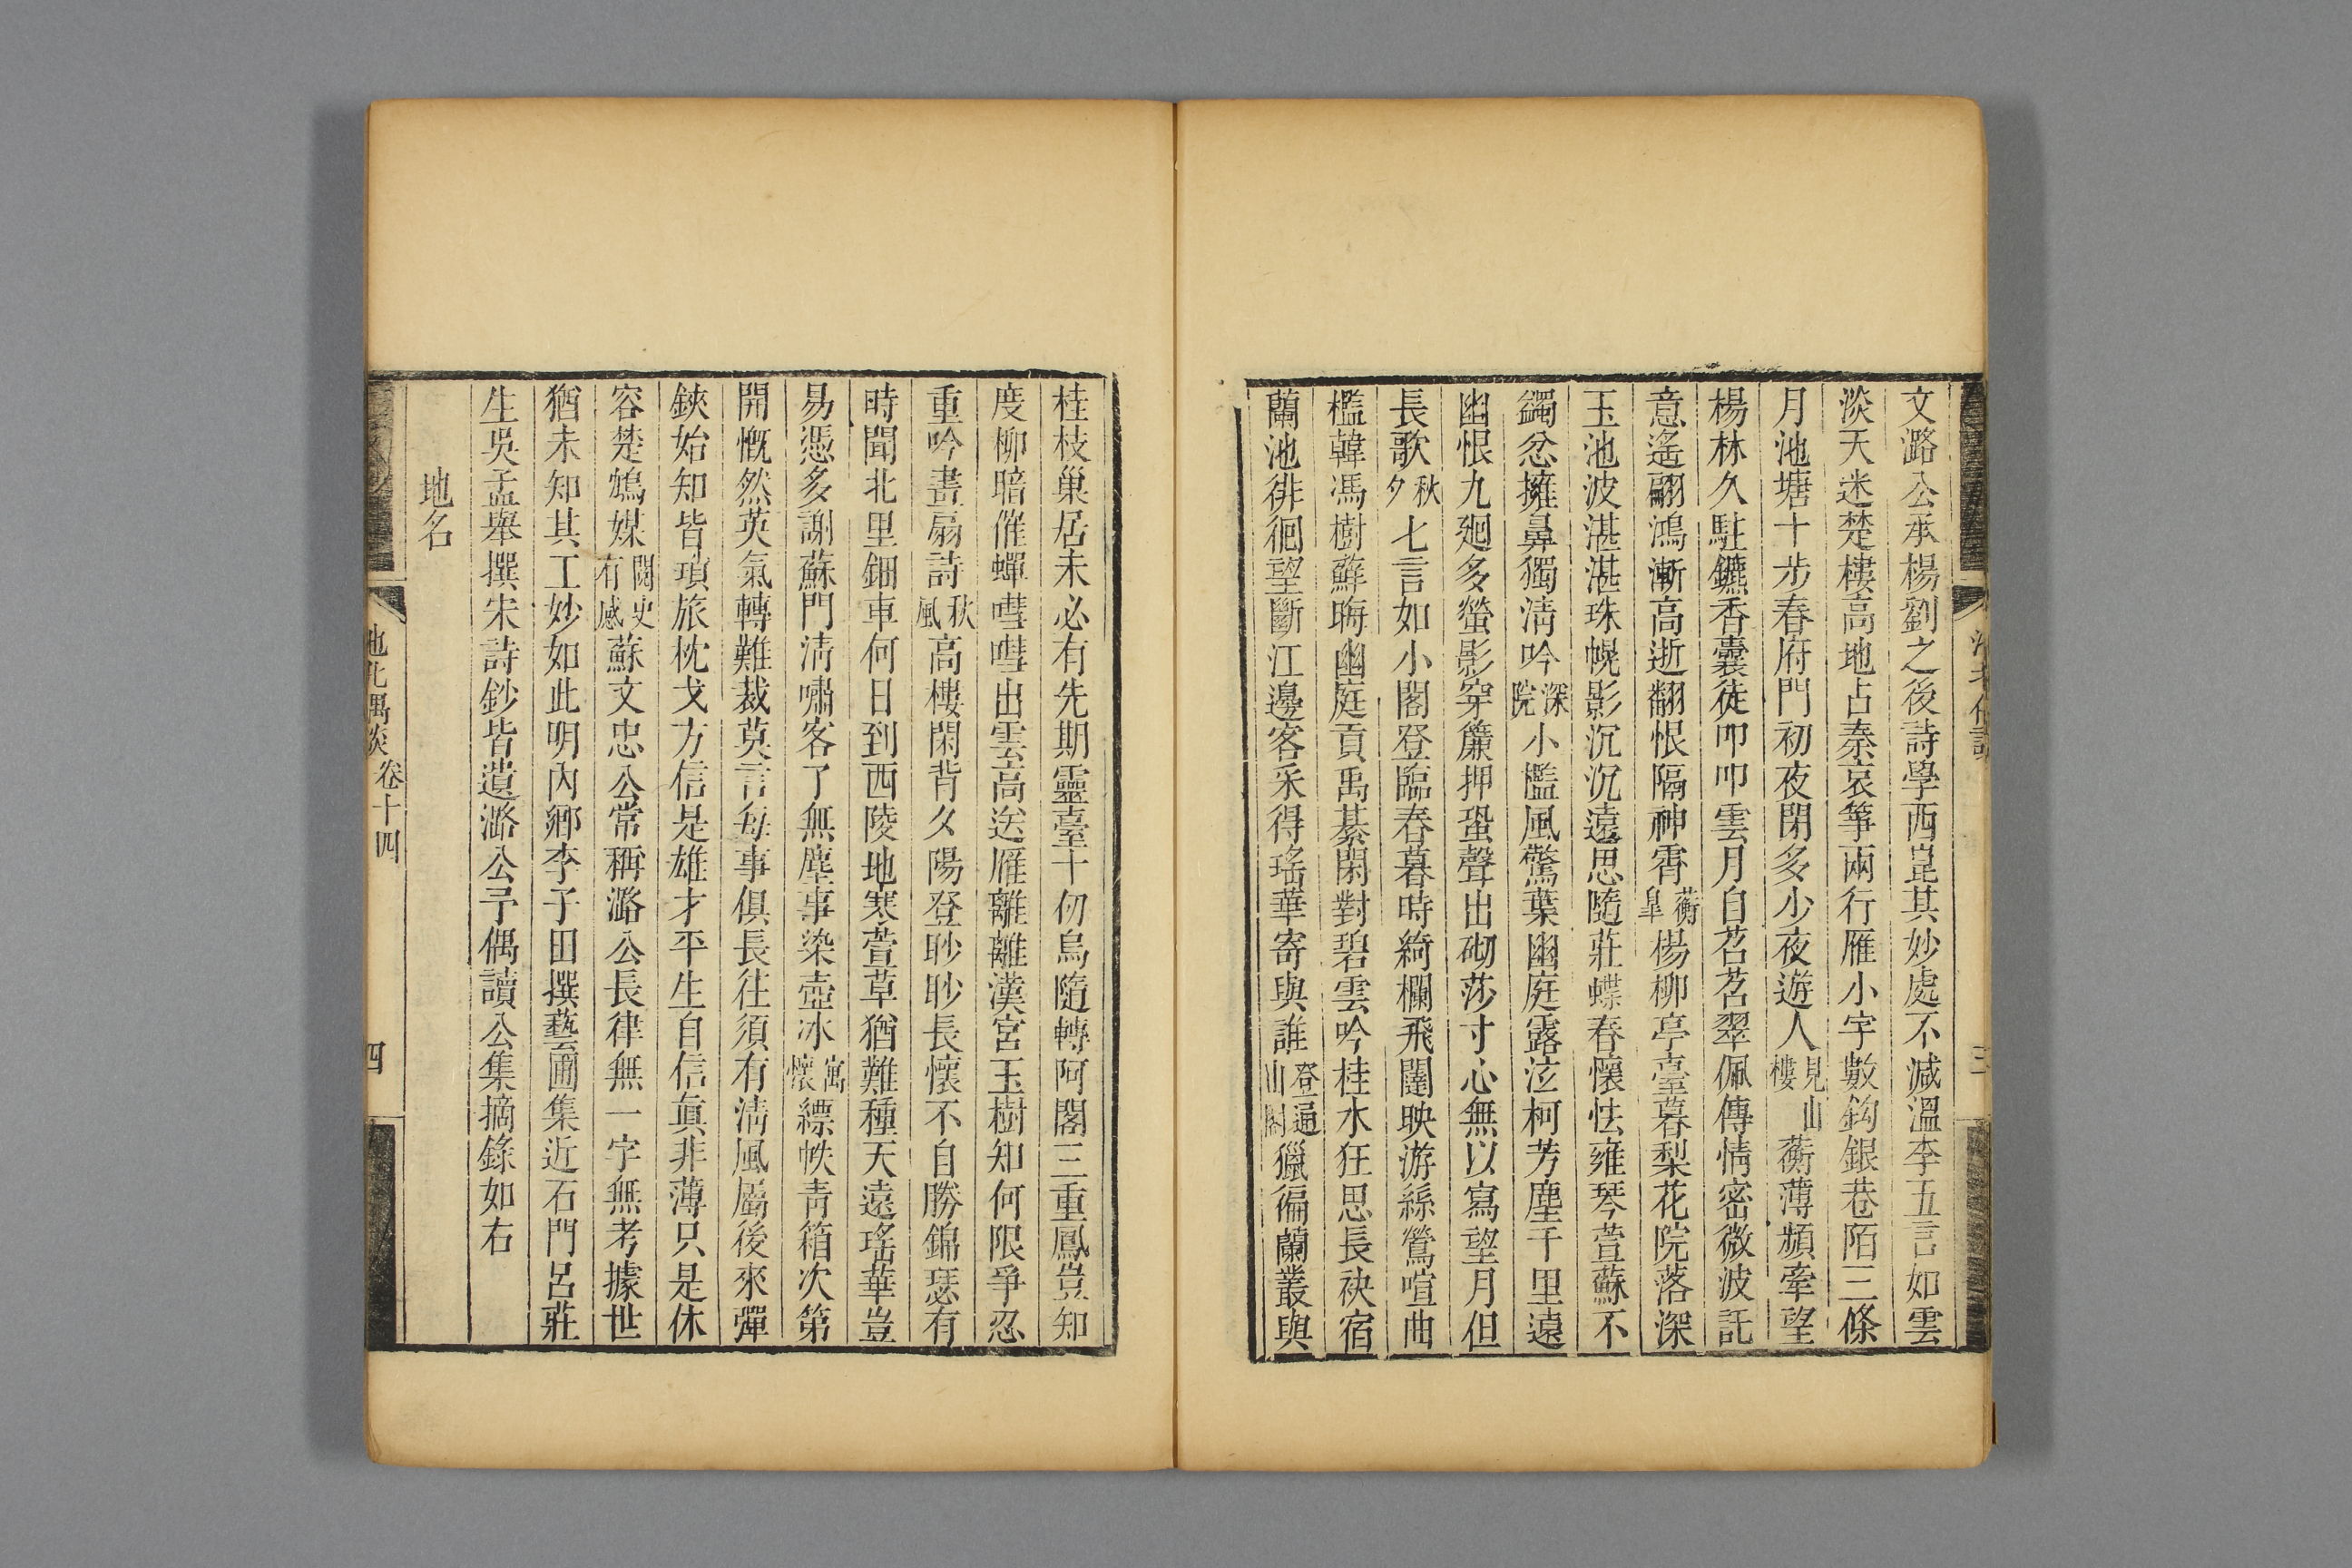 文潞公承楊劉之後詩學西崑其妙處不減溫李五言如雲
淡天迷楚樓高地占秦哀箏兩行雁小字數鈎銀巷陌三條
月池塘十步春府門初夜閉多少夜遊人見山樓蘅薄頻牽望
楊林久駐鑣香囊徒叩叩雲月自苕苕翠佩傳情密微波託
意遙翩鴻漸高逝翻恨隔神霄蘅皐楊柳亭臺暮梨花院落深
玉池波湛湛珠幌影沉沉遠思隨莊蝶春懷怯雍琴萱蘇不
蠲忿擁鼻獨淸吟深院小檻風驚葉幽庭露泣柯芳塵千里遠
幽恨九廻多螢影穿簾押蛩聲出砌莎寸心無以寫望月但
長歌秋夕七言如小閣登臨春暮時綺欄飛闥映游絲鶯喧曲
檻韓馮樹蘚晦幽庭貢禹綦閑對碧雲吟桂水狂思長袂宿
蘭池徘徊望斷江邊客采得瑤華寄與誰登逼山閣獵徧蘭叢與
桂枝巢居未必有先期靈臺十仞烏隨轉阿閣三重鳳豈知
度柳暗催蟬嘒嘒出雲高送雁離離漢宮玉樹知何限爭忍
重吟畫扇詩秋風高樓閑背夕陽登眇眇長懷不自勝錦瑟有
時聞北里鈿車何日到西陵地寒萱草猶難種天遠瑤華豈
易憑多謝蘇門淸嘯客了無塵事染壺冰寓懷縹帙靑箱次第
開慨然英氣轉難裁莫言每事俱長往須有淸風屬後來彈
鋏始知皆瑣旅枕戈方信是雄才平生自信眞非薄只是休
容楚鴆媒閱史有感蘇文忠公常稱潞公長律無一字無考據世
猶未知其工妙如此明內鄉李子田撰藝圃集近石門呂莊
生吳孟舉撰宋詩鈔皆遺潞公予偶讀公集摘錄如右
地名
池北偶談 卷十四
四
三